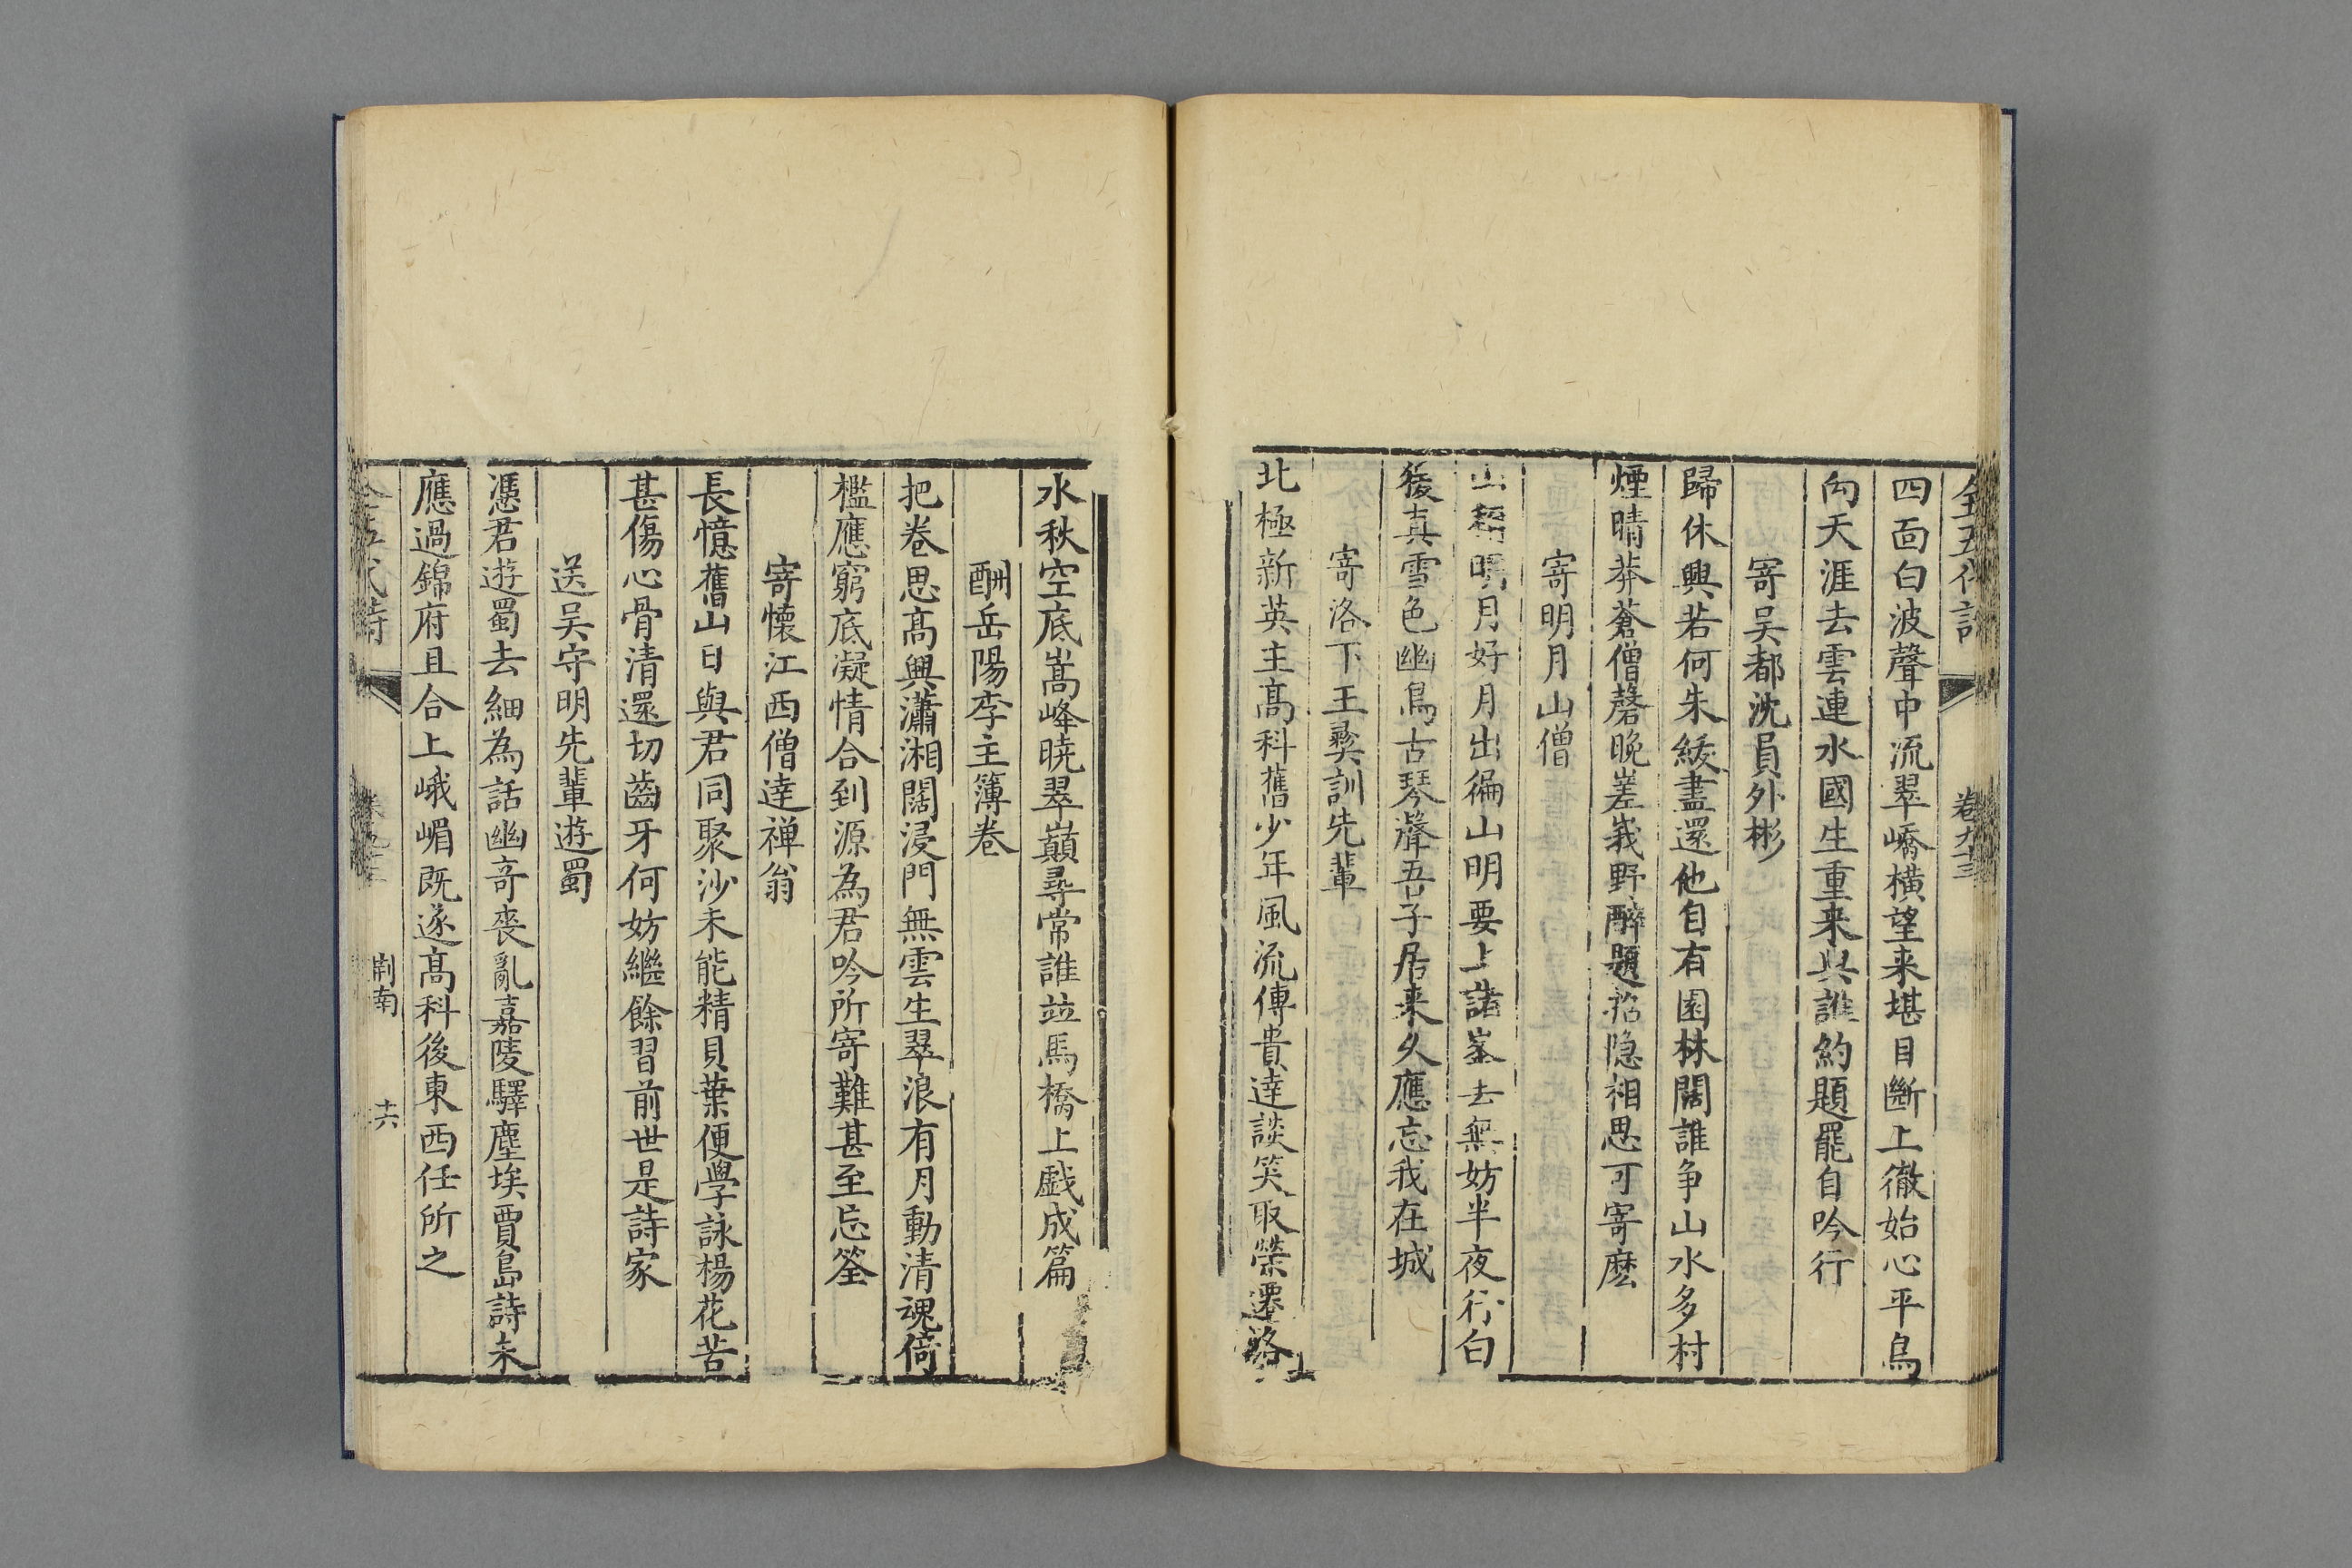 全五代詩
卷九十三
四面白波聲中流翠嶠橫望来堪目斷上徹始心平鳥
向天涯去雲連水國生重来與誰約題罷自吟行
寄吴都沈員外彬
歸休興若何朱紱盡還他自有園林闊誰争山水多村
煙晴莽蒼僧磬晚嵳峩野醉題招隐相思可寄麽
寄明月山僧
山稱明月好月出徧山明要上諸峯去無妨半夜行白
猨真雪色幽鳥古琴聲吾子居来久應忘我在城
寄洛下王彝訓先輩
北極新英主髙科舊少年風流傳貴達談笑取榮遷洛
水秋空底嵩峰曉翠巔尋常誰竝馬橋上戱成篇
酬岳陽李主簿卷
把卷思髙興瀟湘闊浸門無雲生翠浪有月動清魂倚
檻應窮底凝情合到源為君吟所寄難甚至忘筌
寄懷江西僧達禅翁
長憶舊山日與君同聚沙未能精貝葉便學詠楊花苦
甚傷心骨清還切齒牙何妨繼餘習前世是詩家
送吴守明先輩遊蜀
憑君遊蜀去細為話幽奇喪亂嘉陵驛塵埃賈島詩未
應過錦府且合上峨嵋既遂髙科後東西任所之
全五代詩
荆南
十六